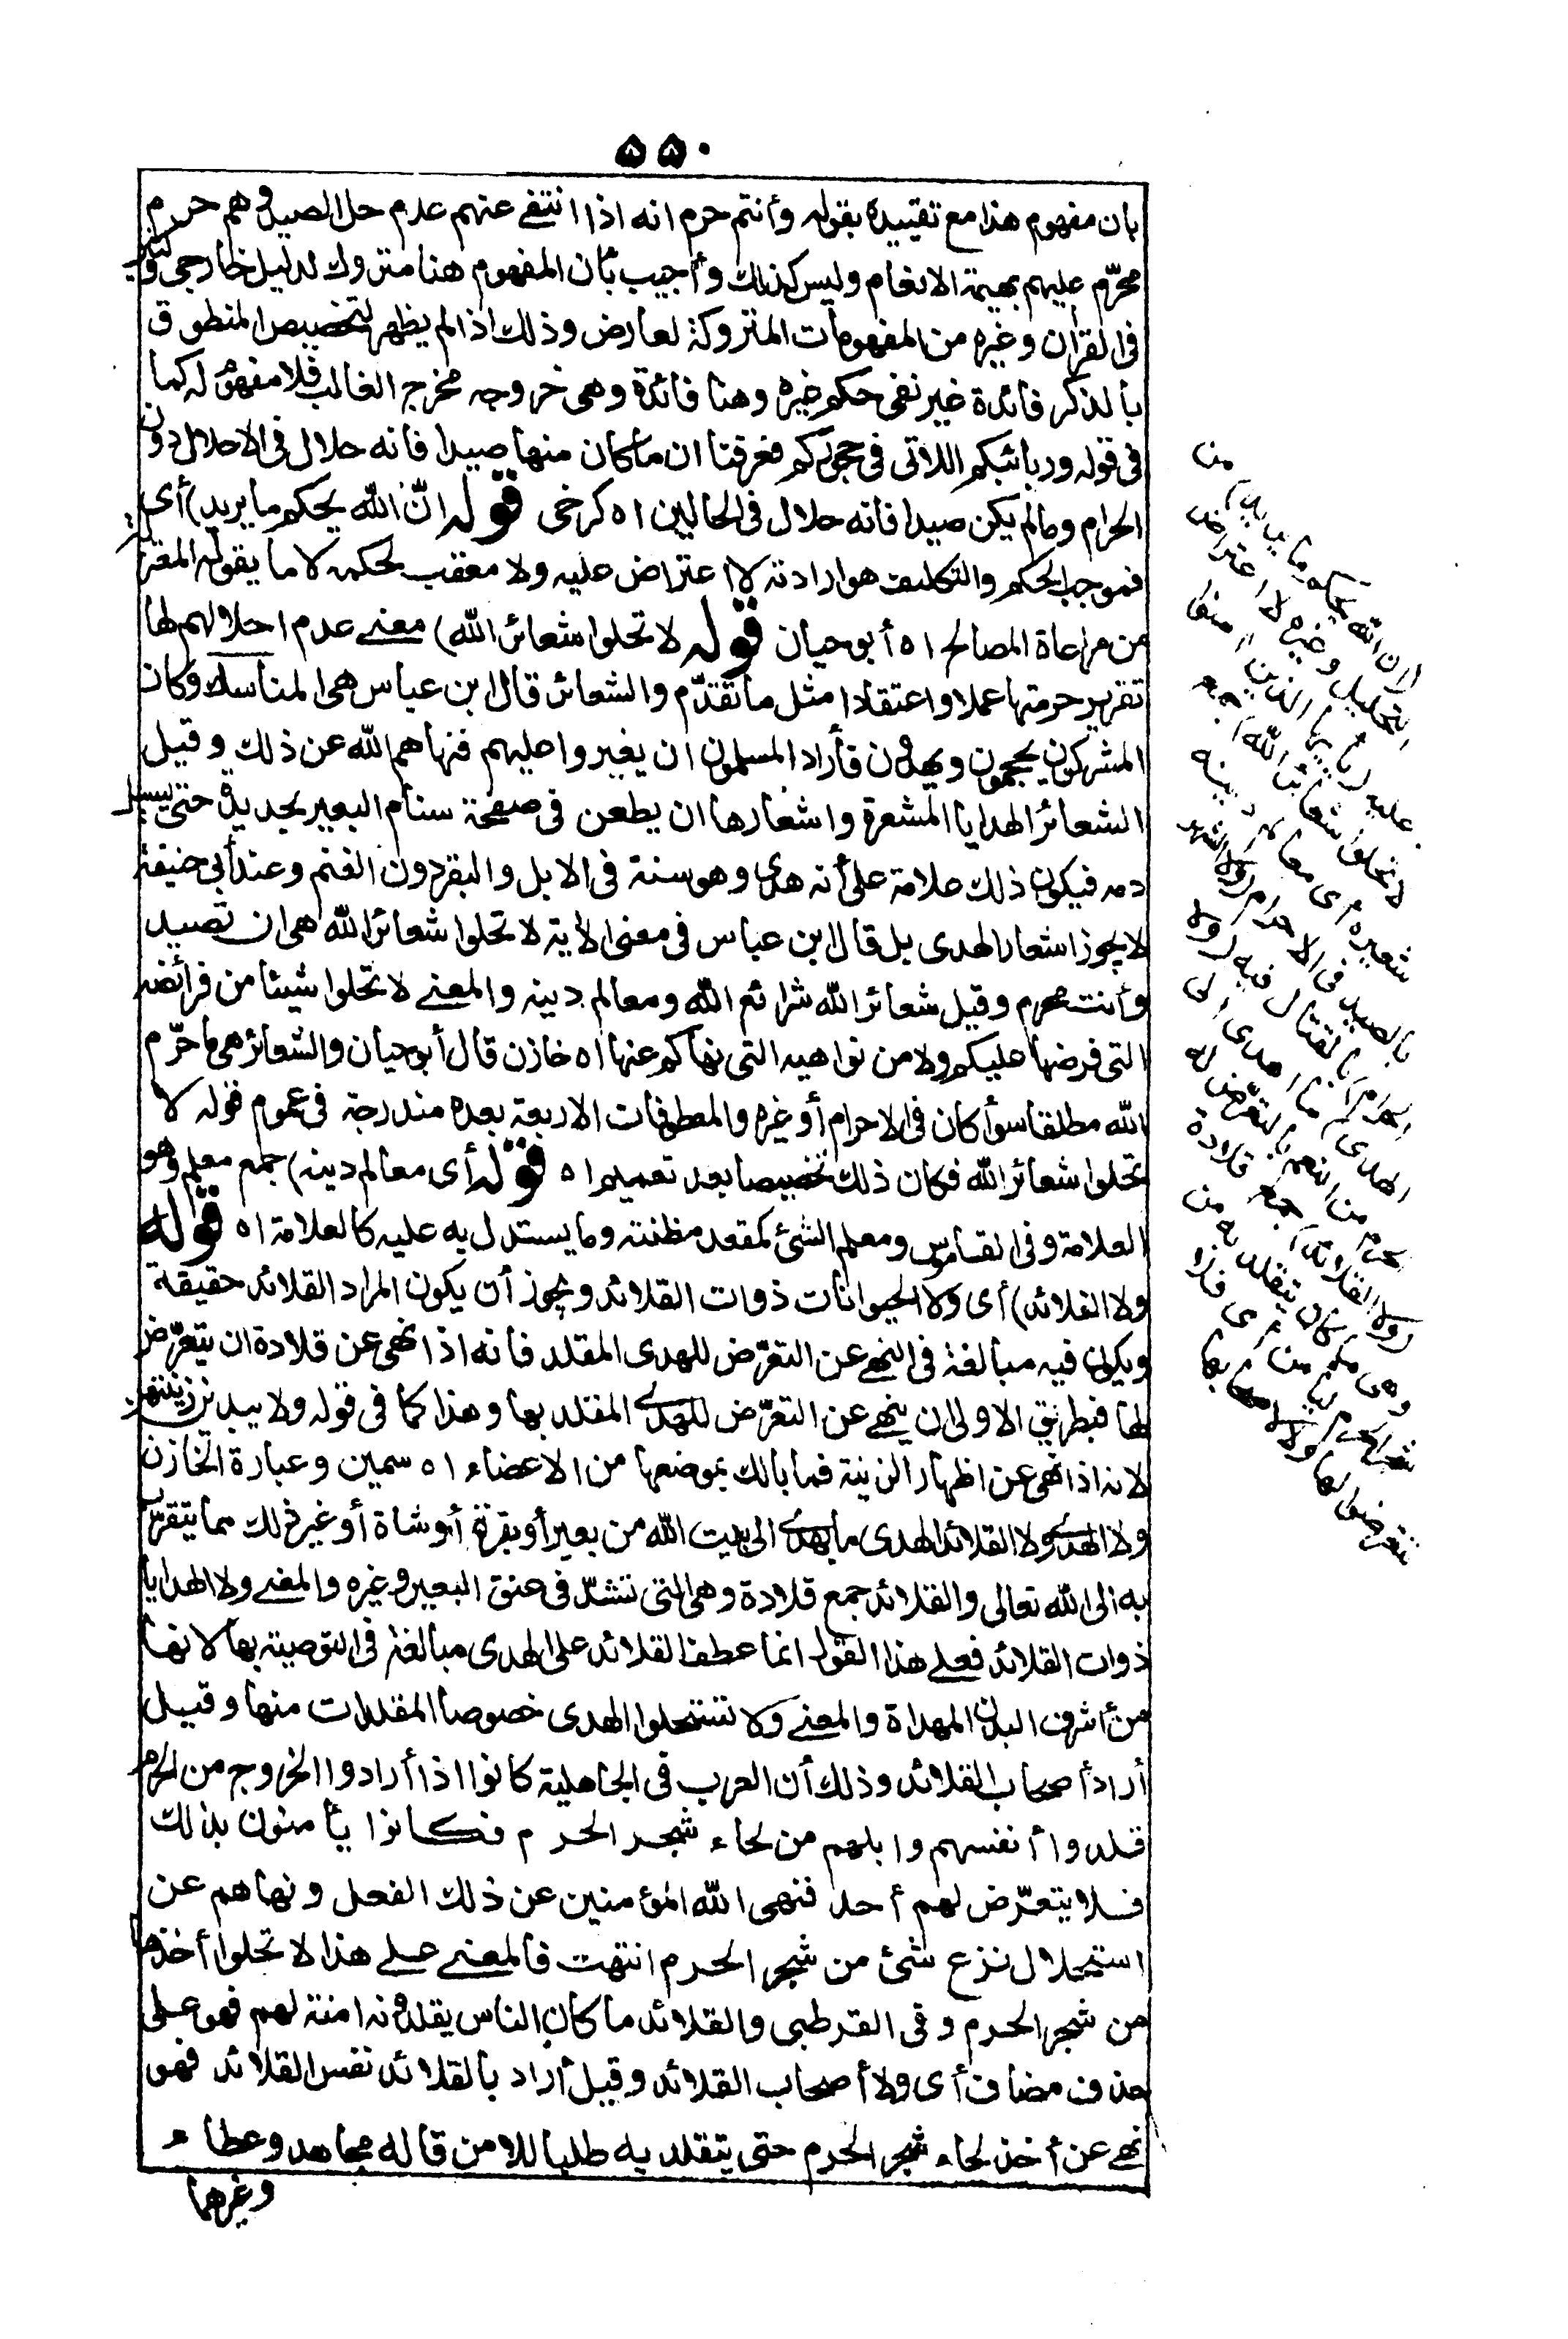 ٥٥٠
بان مفهوم هذا مع تقييده بقوله وأنتم حرم انه اذا انتفى عنهم عدم حل الصيد وهم حرم
محرّم عليهم بهيمة الانعام وليس كذلك وأجيب بأن المفهوم هنا متروك لدليل خارجي وكثير
فى القرأن وغيره من المفهومات المتروكة لعارض وذلك اذا لم يظهر لتخصيص المنطوق
بالذكر فائدة غير نفى حكم غيره وهنا فائدة وهى خروجه مخرج الغالب فلا مفهوم له كما
فى قوله وربائبكم اللاتى فى حجوركم فعرفنا ان ما كان منها صيدا فانه حلال فى الاحلال دون
الحرام وما لم يكن صيدا فانه حلال فى الحالين اه كرخى قوله انّ الله يحكم ما يريد) أى
فموجب الحكم والتكليف هو ارادته لا اعتراض عليه ولا معقب لحكمه لا ما يقوله المعتزلة
من مراعاة المصالح اه أبو حيان قوله لا تحلوا شعائر الله) معنى عدم احلالهم لها
تقرير حرمتها عملا واعتقادا مثل ما تقدّم والشعائر قال ابن عباس هى المناسك وكان
المشركون يحجون ويهدون فأراد المسلمون ان يغيروا عليهم فنهاهم الله عن ذلك وقيل
الشعائر الهدايا المشعرة واشعارها ان يطعن فى صفحة سنام البعير بحديدة حتى يسيل
دمه فيكون ذلك علامة على أنه هدى وهو سنة فى الابل والبقر دون الغنم وعند أبى حنيفة
لا يجوز اشعار الهدى بل قال ابن عباس فى معنى الأية لا تحلوا شعائر الله هى ان تصيد
وأنت محرم وقيل شعائر الله شرائع الله ومعالم دينه والمعنى لا تحلوا شيئا من فرائضه
التى فرضها عليكم ولا من نواهيه التى نهاكم عنها اه خازن قال أبو حيان والشعائر هى ما حرّم
الله مطلقا سوأ كان فى الاحرام أو غيره والمعطوفات الاربعة بعده مندرجة فى عموم قوله لا
تحلوا شعائر الله فكان ذلك تخصيصا بعد تعميم اه قوله أى معالم دينه) جمع معلم وهو
العلامة وفى القاموس ومعلم الشئ كمقعد مظنته وما يستدل به عليه كالعلامة اه قوله
ولا القلائد) أى ولا الحيوانات ذوات القلائد ويجوز أن يكون المراد القلائد حقيقة
ويكون فيه مبالغة فى النهى عن التعرّض للهدى المقلد فانه اذا نهى عن قلادة ان يتعرّض
لها فبطريق الاولى ان ينهى عن التعرّض للهدى المقلد بها وهذا كما فى قوله ولا يبدين زينتهن
لانه اذا نهى عن اظهار الزينة فما بالك بموضعها من الاعضاء اه سمين وعبارة الخازن
ولا الهدى ولا القلائد الهدى ما يهدى الى بيت الله من بعير أو بقرة أو شاة أو غير ذلك مما يتقرّب
به الى الله تعالى والقلائد جمع قلادة وهى التى تشدّ فى عنق البعير وغيره والمعنى ولا الهدايا
ذوات القلائد فعلى هذا القول انما عطف القلائد على الهدى مبالغة فى التوصية بها لانها
من أشرف البدن المهداة والمعنى ولا تستحلوا الهدى خصوصا المقلدات منها وقيل
أراد أصحاب القلائد وذلك أن العرب فى الجاهلية كانوا اذا أرادوا الخروج من الحرم
قلدوا أنفسهم وابلهم من لحاء شجر الحرم فكانوا يأمنون بذلك
فلا يتعرّض لهم أحد فنهى الله المؤمنين عن ذلك الفعل ونهاهم عن
استحلال نزع شئ من شجر الحرم انتهت فالمعنى على هذا لا تحلوا أخذها
من شجر الحرم وفى القرطبى والقلائد ما كان الناس يقلدونه امنة لهم فهو على
حذف مضاف أى ولا أصحاب القلائد وقيل أراد بالقلائد نفس القلائد فهو
نهى عن أخذ لحاء شجر الحرم حتى يتقلد به طلبا للامن قاله مجاهد وعطاء
وغيرهما
(ان الله يحكم ما يريد) من
التحليل وغيره لا اعتراض
عليه (يأيها الذين امنوا
لا تحلوا شعائر الله) جمع
شعيرة أى معالم دينه
بالصيد فى الاحرام (ولا الشهر
الحرام) بالقتال فيه (ولا
الهدى) ما اهدى الى
الحرم من النعم بالتعرّض له
(ولا القلائد) جمع قلادة
وهى ما كان يتقلد به من
شجر الحرم ليأمن أى فلا
تتعرضوا لها ولا لاصحابها